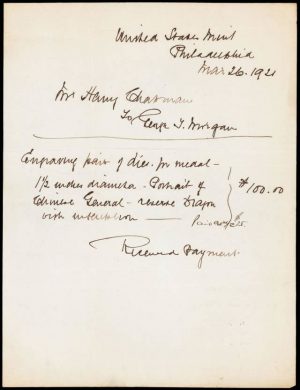 United States Mint
Philadelphia
Mar 26. 1921
Mr Henry Chapman
To George T. Morgan
Engraving pair of dies for medal-
1½ inches diameter - Portrait of
Chinese General - reverse Dragon
with inscription
$100.00
Received Payment